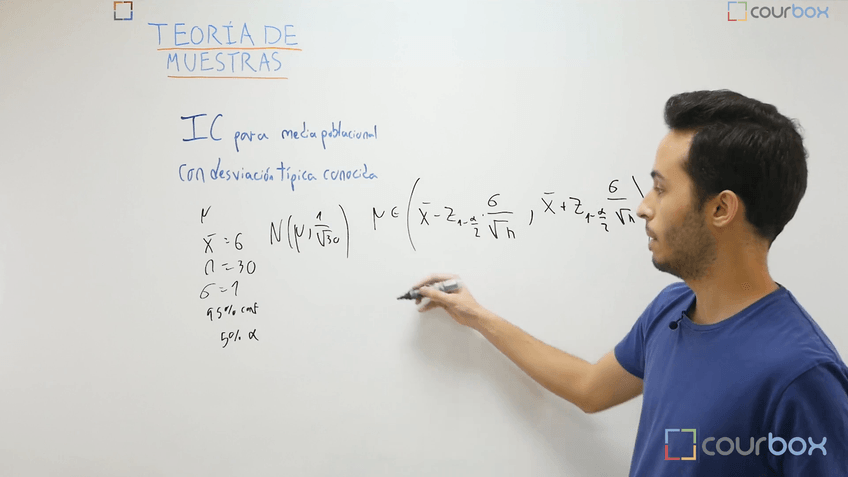 TEORÍA DE
MUESTRAS
courbox
IC para media poblacional
con desviación típica conocida
μ
x̄ = 6
n = 30
σ = 1
95% conf
5% α
N(μ, 1/√30)
μ ∈ (x̄ - z₁₋α/₂ · σ/√n , x̄ + z₁₋α/₂ σ/√n)
courbox